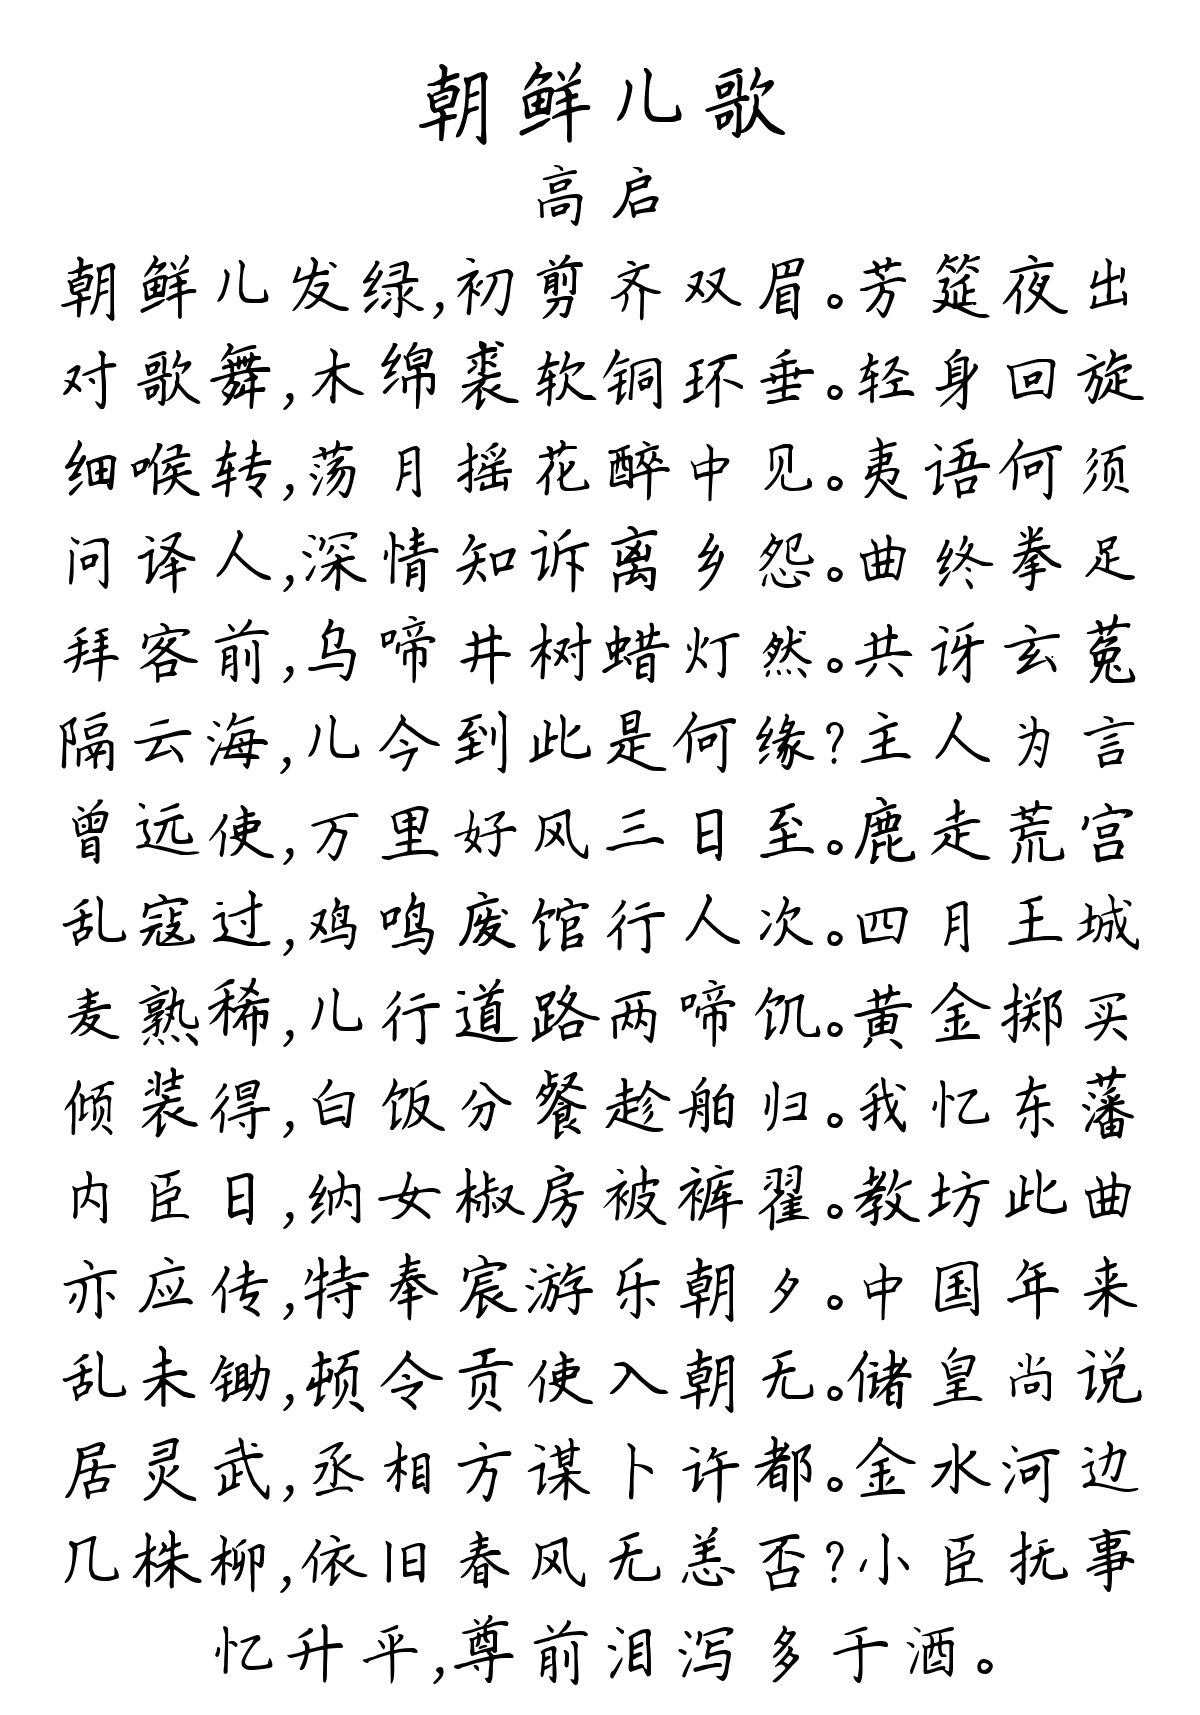 朝鲜儿歌
高启
朝鲜儿发绿,初剪齐双眉。芳筵夜出
对歌舞,木绵裘软铜环垂。轻身回旋
细喉转,荡月摇花醉中见。夷语何须
问译人,深情知诉离乡怨。曲终拳足
拜客前,乌啼井树蜡灯然。共讶玄菟
隔云海,儿今到此是何缘?主人为言
曾远使,万里好风三日至。鹿走荒宫
乱寇过,鸡鸣废馆行人次。四月王城
麦熟稀,儿行道路两啼饥。黄金掷买
倾装得,白饭分餐趁舶归。我忆东藩
内臣日,纳女椒房被裤翟。教坊此曲
亦应传,特奉宸游乐朝夕。中国年来
乱未锄,顿令贡使入朝无。储皇尚说
居灵武,丞相方谋卜许都。金水河边
几株柳,依旧春风无恙否?小臣抚事
忆升平,尊前泪泻多于酒。